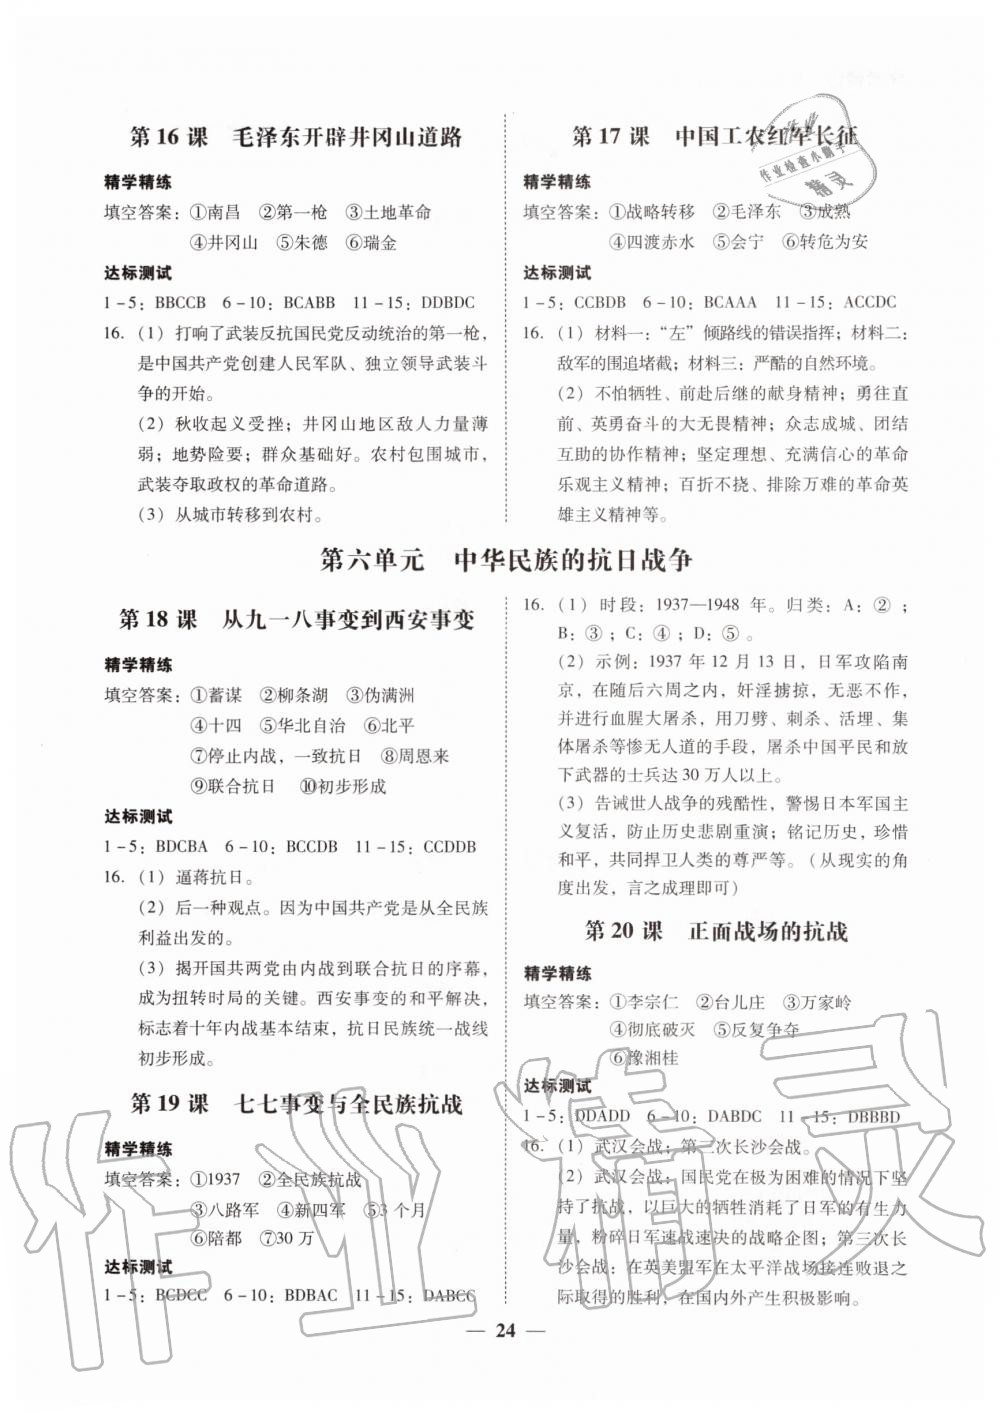 第 16 课　毛泽东开辟井冈山道路
精学精练
填空答案：①南昌　②第一枪　③土地革命
④井冈山　⑤朱德　⑥瑞金
达标测试
1－5：BBCCB　6－10：BCABB　11－15：DDBDC
16.（1）打响了武装反抗国民党反动统治的第一枪，
是中国共产党创建人民军队、独立领导武装斗
争的开始。
（2）秋收起义受挫；井冈山地区敌人力量薄
弱；地势险要；群众基础好。农村包围城市，
武装夺取政权的革命道路。
（3）从城市转移到农村。
第 17 课　中国工农红军长征
精学精练
填空答案：①战略转移　②毛泽东　③成熟
④四渡赤水　⑤会宁　⑥转危为安
达标测试
1－5：CCBDB　6－10：BCAAA　11－15：ACCDC
16.（1）材料一：“左”倾路线的错误指挥；材料二：
敌军的围追堵截；材料三：严酷的自然环境。
（2）不怕牺牲、前赴后继的献身精神；勇往直
前、英勇奋斗的大无畏精神；众志成城、团结
互助的协作精神；坚定理想、充满信心的革命
乐观主义精神；百折不挠、排除万难的革命英
雄主义精神等。
作业
作业检查小助手
精灵
第六单元　中华民族的抗日战争
第 18 课　从九一八事变到西安事变
精学精练
填空答案：①蓄谋　②柳条湖　③伪满洲
④十四　⑤华北自治　⑥北平
⑦停止内战，一致抗日　⑧周恩来
⑨联合抗日　⑩初步形成
达标测试
1－5：BDCBA　6－10：BCCDB　11－15：CCDDB
16.（1）逼蒋抗日。
（2）后一种观点。因为中国共产党是从全民族
利益出发的。
（3）揭开国共两党由内战到联合抗日的序幕，
成为扭转时局的关键。西安事变的和平解决，
标志着十年内战基本结束，抗日民族统一战线
初步形成。
第 19 课　七七事变与全民族抗战
精学精练
填空答案：①1937　②全民族抗战
③八路军　④新四军　⑤3 个月
⑥陪都　⑦30 万
达标测试
1－5：BCDCC　6－10：BDBAC　11－15：DABCC
16.（1）时段：1937—1948 年。归类：A：②；
B：③；C：④；D：⑤。
（2）示例：1937 年 12 月 13 日，日军攻陷南
京，在随后六周之内，奸淫掳掠，无恶不作，
并进行血腥大屠杀，用刀劈、刺杀、活埋、集
体屠杀等惨无人道的手段，屠杀中国平民和放
下武器的士兵达 30 万人以上。
（3）告诫世人战争的残酷性，警惕日本军国主
义复活，防止历史悲剧重演；铭记历史，珍惜
和平，共同捍卫人类的尊严等。（从现实的角
度出发，言之成理即可）
第 20 课　正面战场的抗战
精学精练
填空答案：①李宗仁　②台儿庄　③万家岭
④彻底破灭　⑤反复争夺
⑥豫湘桂
达标测试
1－5：DDADD　6－10：DABDC　11－15：DBBBD
16.（1）武汉会战；第三次长沙会战。
（2）武汉会战：国民党在极为困难的情况下坚
持了抗战，以巨大的牺牲消耗了日军的有生力
量，粉碎日军速战速决的战略企图；第三次长
沙会战：在英美盟军在太平洋战场接连败退之
际取得的胜利，在国内外产生积极影响。
作业精灵
— 24 —